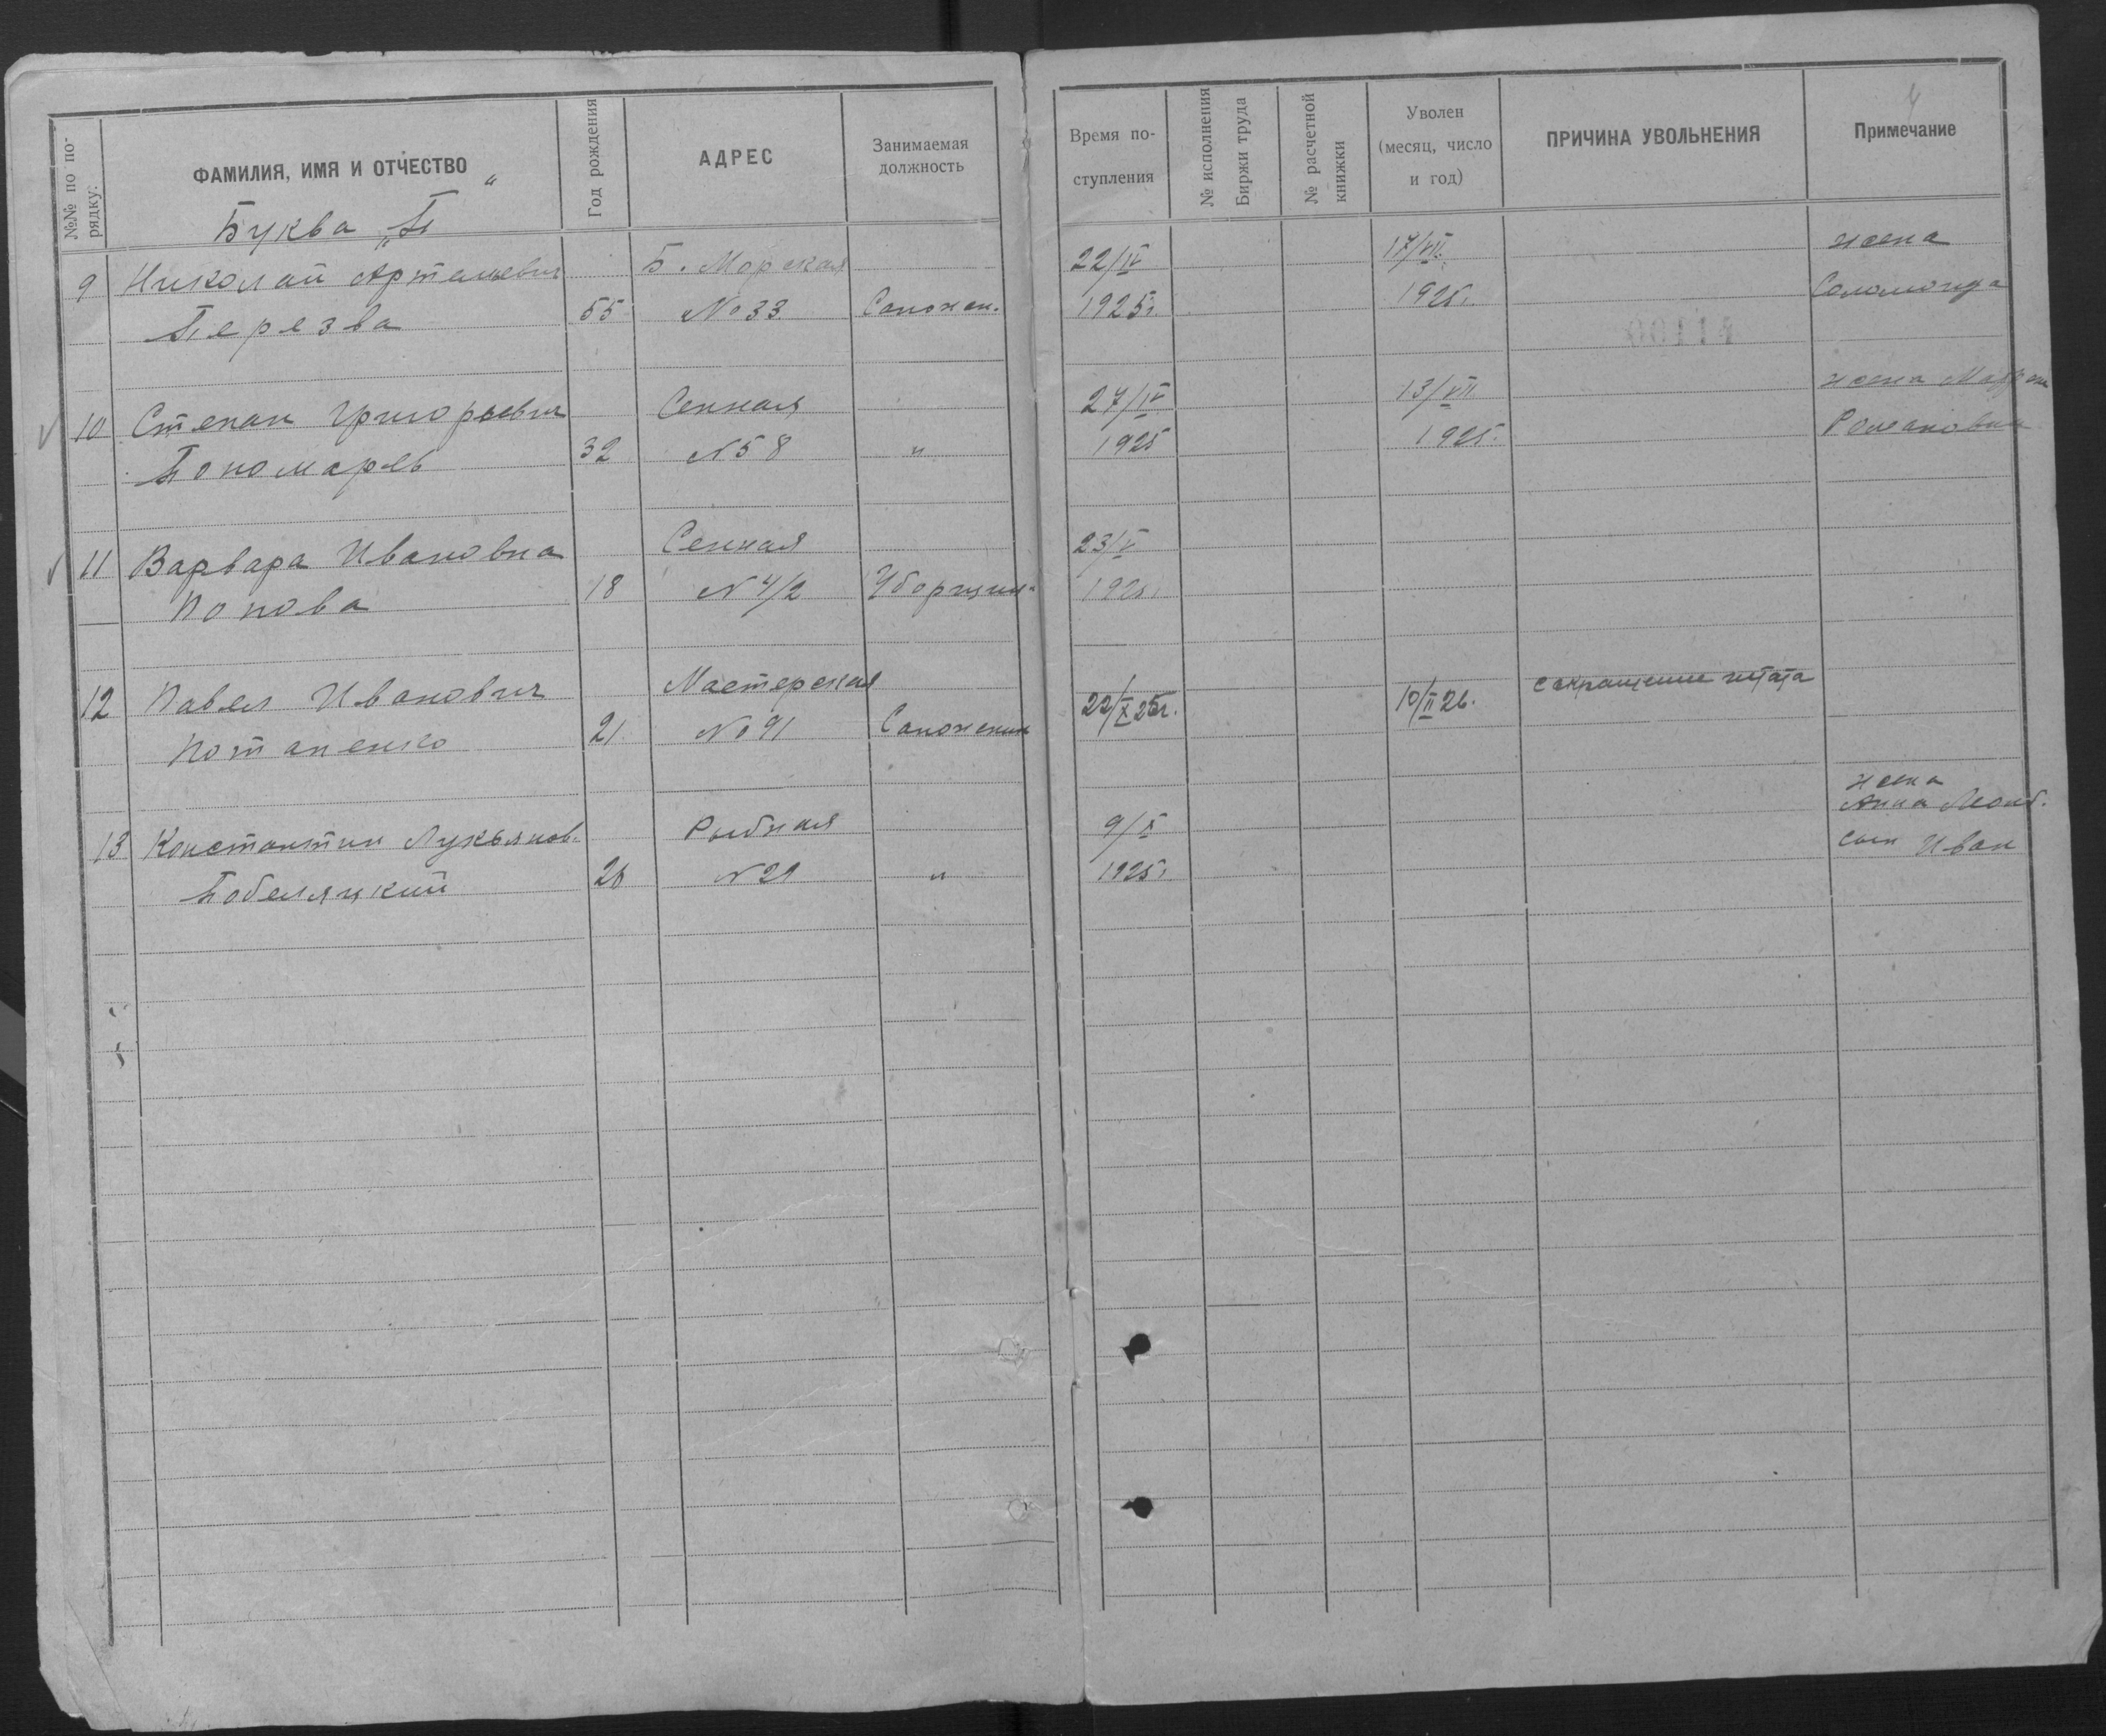 №№ по по-
рядку:
ФАМИЛИЯ, ИМЯ И ОТЧЕСТВО
Год рождения
АДРЕС
Занимаемая
должность
Время по-
ступления
№ исполнения
Биржи труда
№ расчетной
книжки
Уволен
(месяц, число
и год)
ПРИЧИНА УВОЛЬНЕНИЯ
Примечание
4
Буква „П“
9 Николай Артемьевич Б. Морская 22/IV 17/VII жена
Перезва 55 № 33 Сапожн. 1925г. 1925г. Соломонида
10 Степан Григорьевич Сенная 27/IV 13/VII жена
Пономарь 32 N 58 " 1925 1925г. Романовна
11 Варвара Ивановна Сенная 23/V
Попова 18 N 4/2 Уборщица 1925г.
12 Павел Иванович Мастерская 22/X 25г. 10/II 26. сокращение штата
Потапенко 21 № 91 Сапожник
13 Константин Лукьянов. Рыбная 9/X жена
Анна
Побеляцкий 26 N 29 " 1925г. сын Иван